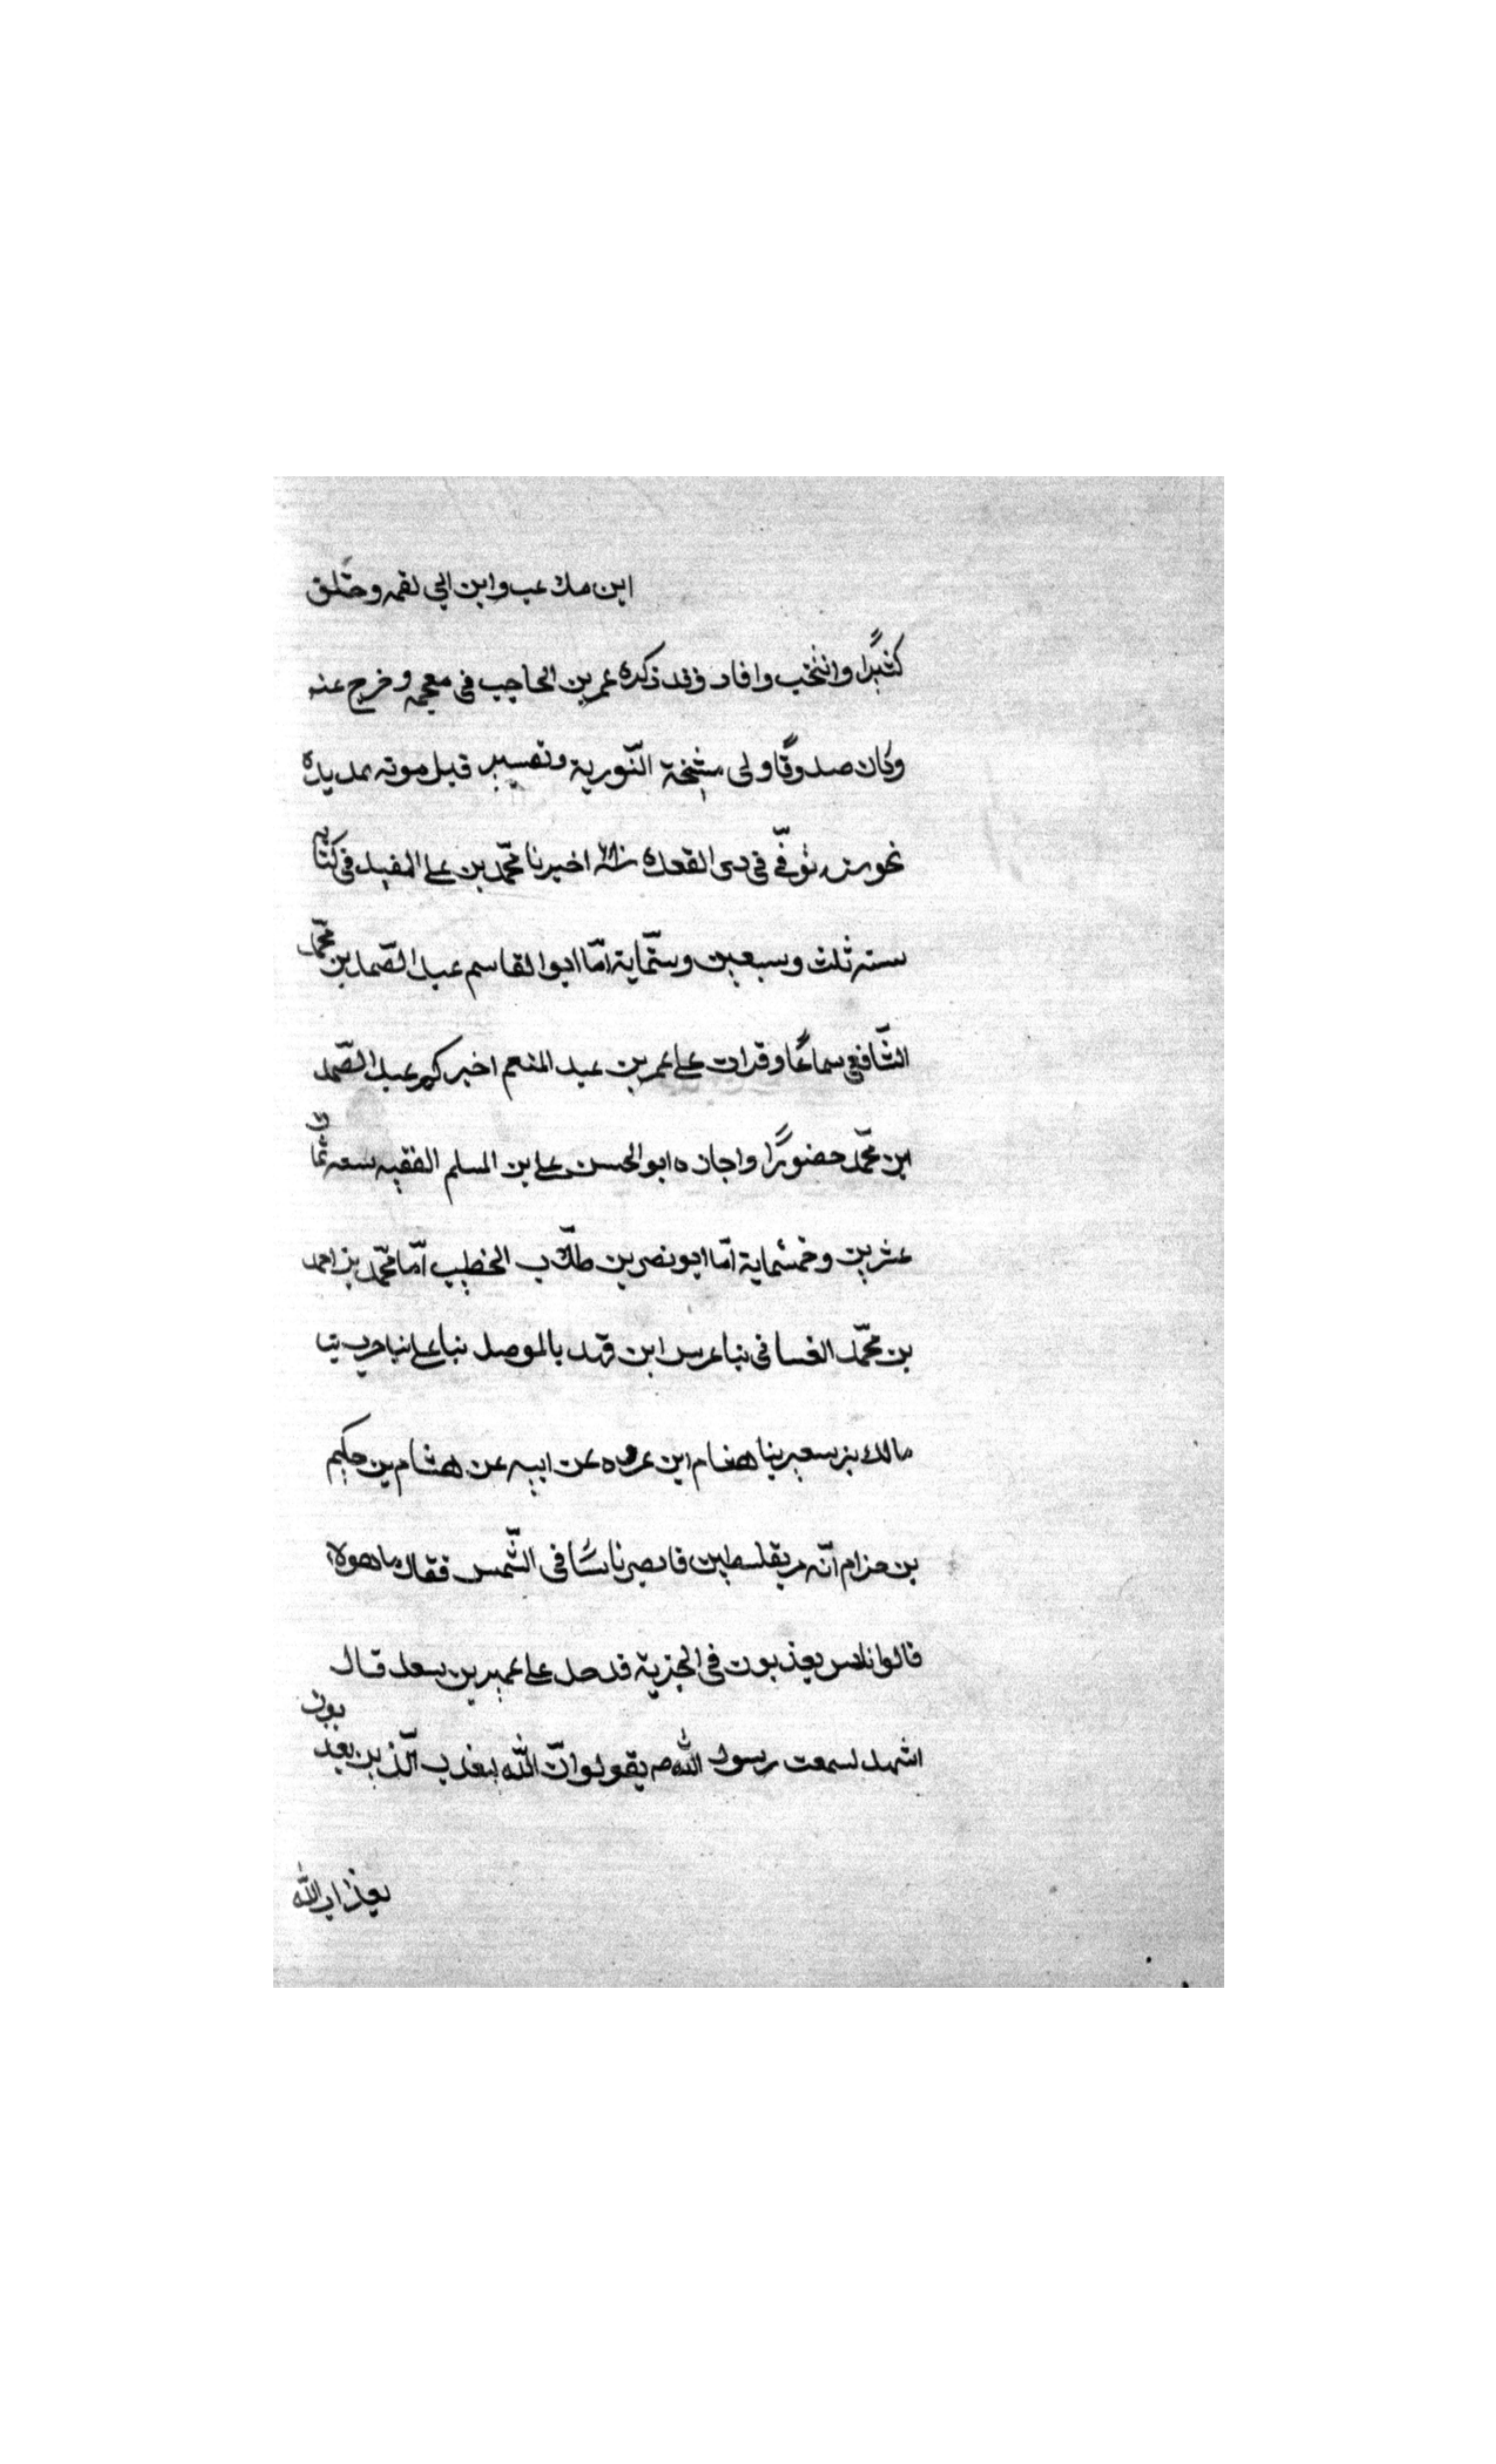 ابن ملاعب وابن ابي لقمه وخلق
كثيرًا وانتخب وافاد وقد ذكره عمر بن الحاجب في معجمه وخرج عنه
وكان صدوقًا ولى مشيخة النّورية وتفسير قبل موته بمديدة
نحو من توفّي في دى القعدة اخبرنا محمّد بن على المفيد في كتابه
سنه ثلث وسبعين وستّماية امّا ابوالقاسم عبد الصّمد بن محمّد
الشّافعي سماعًا وقرات على عمر بن عبد المنعم اخبركم عبد الصّمد
ابن محمّد حضورًا واجازه ابوالحسن على بن المسلم الفقيه سنه ثمان
عشرين وخمسماية امّا ابو نصر بن طلّاب الخطيب امّا محمّد بن احمد
بن محمّد الغسانى نبا عرس ابن فهد بالموصل نبا على نبا حرب نبا
مالك بن سعير نبا هشام ابن عروه عن ابيه عن هشام بن حكيم
بن حزام انّه مر بفلسطين فابصر ناسًا فى الشّمس فقال ما هولاء
قالوا ناس يعذبون في الجزية فدخل على عمير بن سعد قال
اشهد لسمعت رسول الله ص يقول وانّ الله ليعذب الّذين يعذبون
بعذاب الله